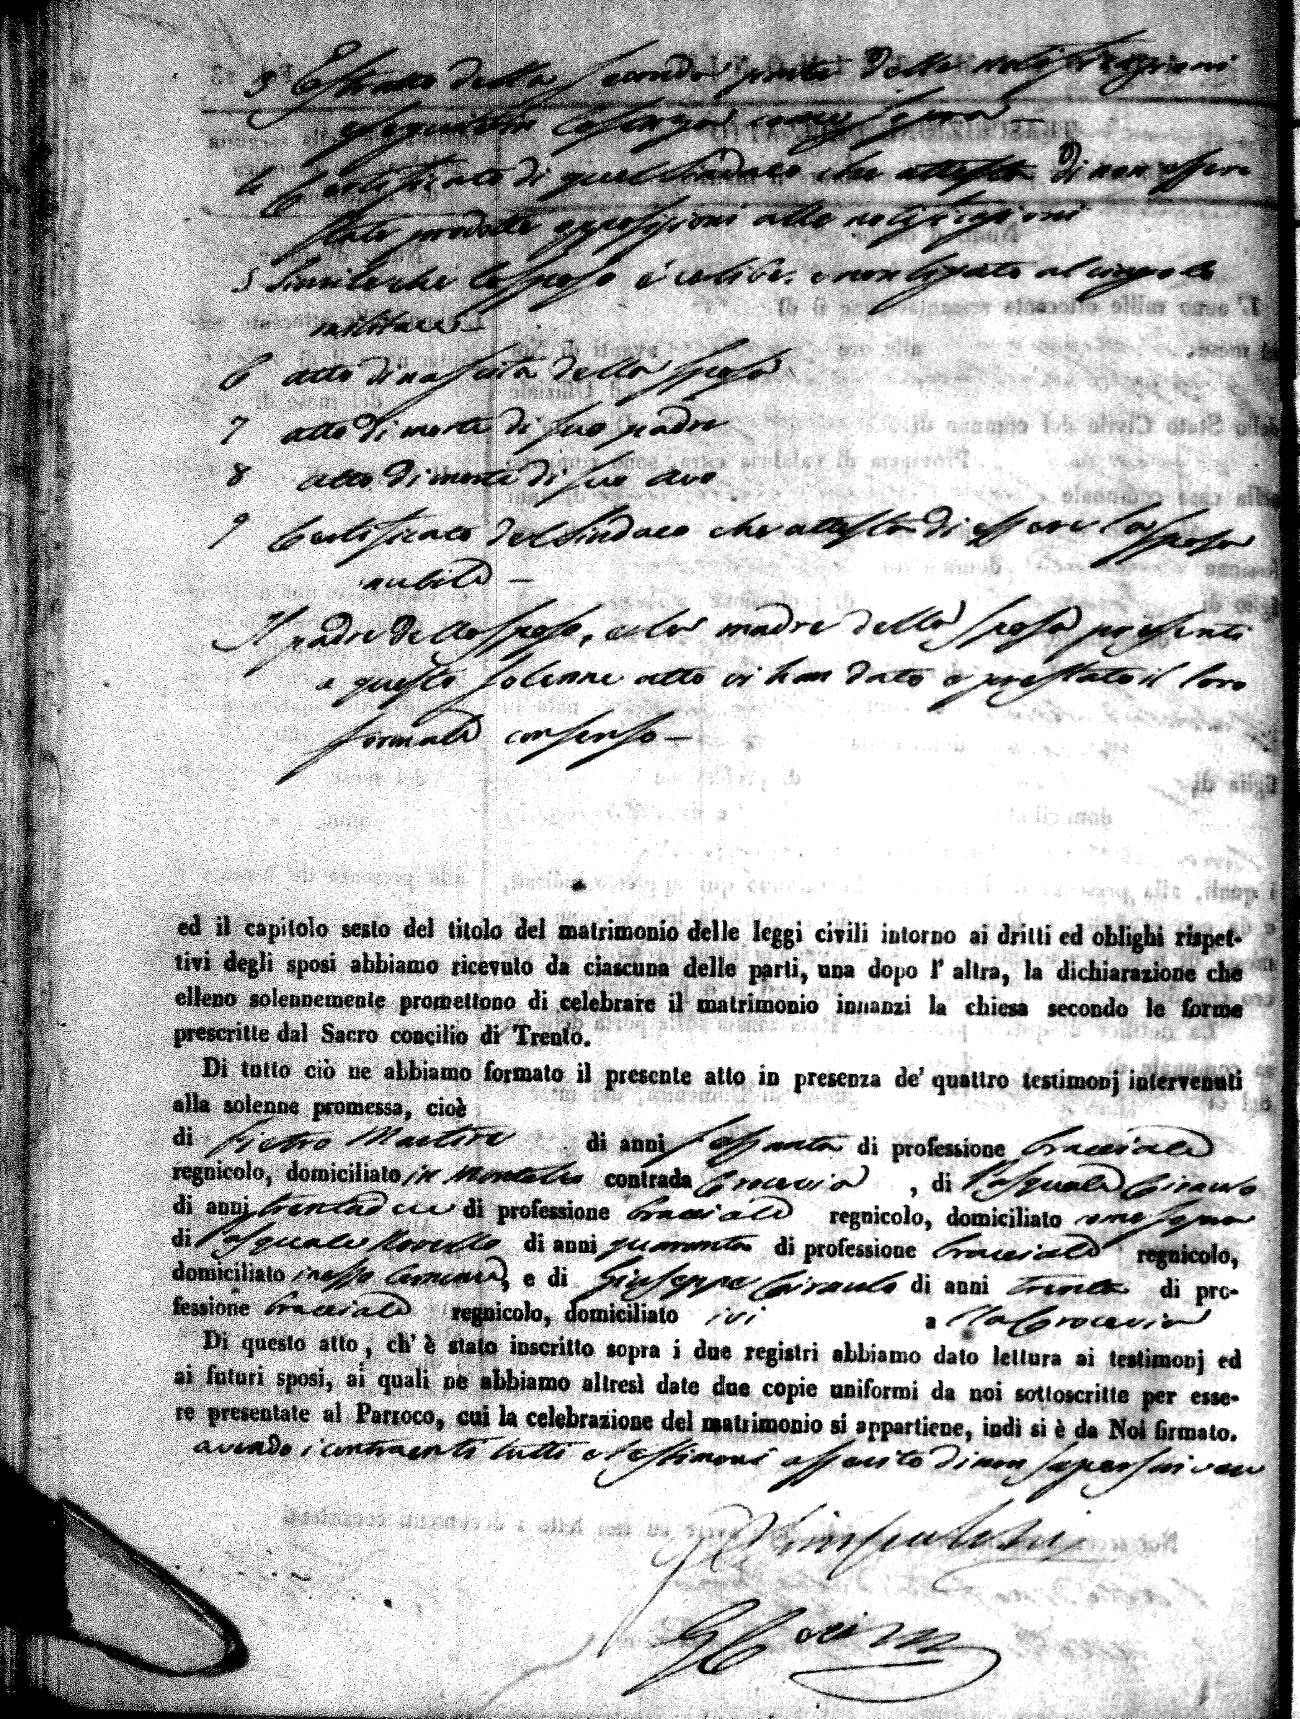 3 Estratto della seconda parte delle notificazioni
eseguite in Cosenza come sopra —
4 Certificato di quel Sindaco che attesta di non essere
state prodotte opposizioni alle notificazioni
5 Simile che lo sposo è celibe, e non ligato al cingolo
militare —
6 atto di nascita della sposa
7 atto di morte di suo padre
8 atto di morte di suo avo
9 Certificato del Sindaco che attesta di essere la sposa
nubile —
Il padre dello sposo, e la madre della sposa presenti
a questo solenne atto vi han dato e prestato il loro
formale consenso —
ed il capitolo sesto del titolo del matrimonio delle leggi civili intorno ai dritti ed oblighi rispet-
tivi degli sposi abbiamo ricevuto da ciascuna delle parti, una dopo l' altra, la dichiarazione che
elleno solennemente promettono di celebrare il matrimonio innanzi la chiesa secondo le forme
prescritte dal Sacro concilio di Trento.
Di tutto ciò ne abbiamo formato il presente atto in presenza de' quattro testimonj intervenuti
alla solenne promessa, cioè
di Pietro Martire di anni sessanta di professione bracciale
regnicolo, domiciliato in contrada Crocevia, di Pasquale Ciraulo
di anni di professione bracciale regnicolo, domiciliato come sopra
di Pasquale di anni quaranta di professione bracciale regnicolo,
domiciliato in esso Comune, e di Giuseppe Ciraulo di anni trenta di pro-
fessione bracciale regnicolo, domiciliato ivi alla Crocevia
Di questo atto, ch' è stato inscritto sopra i due registri abbiamo dato lettura ai testimonj ed
ai futuri sposi, ai quali ne abbiamo altresì date due copie uniformi da noi sottoscritte per esse-
re presentate al Parroco, cui la celebrazione del matrimonio si appartiene, indi si è da Noi firmato.
avendo i contraenti tutti e testimoni asserito di non saper scrivere